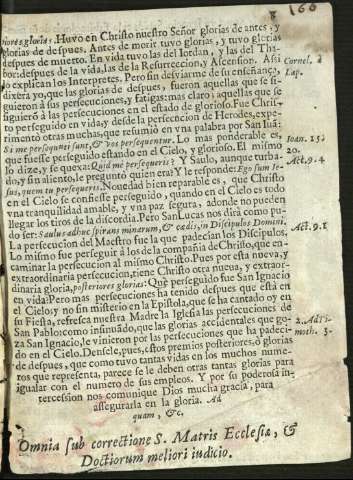 166
riores, gloria: Huvo en Christo nuestro Señor glorias de antes, y
glorias de despues. Antes de morir tuvo glorias, y tuvo glorias
despues de muerto. En vida tuvo las del Iordan, y las del Tha-
bor: despues de la vida, las de la Resurreccion, y Ascension. Assi
lo explican los Interpretes. Pero sin desviarme de su enseñança,
dixera yo, que las glorias de despues, fueron aquellas que se si-
guieron à sus persecuciones, y fatigas: mas claro; aquellas que se
siguierõ à las persecuciones en el estado de glorioso. Fue Chris-
to perseguido en vida; y desde la persecucion de Herodes, expe-
rimentò otras muchas, que resumiò en vna palabra por San Iuã:
Si me persequuti sunt, & vos persequentur. Lo mas ponderable es,
que fuesse perseguido estando en el Cielo, y glorioso. El mismo
lo dize, y se quexa: Quid me persequeris? Y Saulo, aunque turba-
do, y sin aliento, le preguntò quien era? Y le responde: Ego sum Ie-
sus, quem tu persequeris. Novedad bien reparable es, que Christo
en el Cielo se confiesse perseguido, quando en el Cielo es todo
vna tranquilidad amable, y vna paz segura, adonde no pueden
llegar los tiros de la discordia. Pero San Lucas nos dirà como pu-
do ser: Saulus adhuc spirans minarum, & cædis, in Discipulos Domini.
La persecucion del Maestro fue la que padecian los Discipulos.
Lo mismo fue perseguir à los de la compañia de Christo, que en-
caminar la persecucion al mismo Christo. Pues por esta nueva, y
extraordinaria persecucion, tiene Christo otra nueua, y extraor-
dinaria gloria, posteriores glorias: Què perseguido fue San Ignacio
en vida: Pero mas persecuciones ha tenido despues que està en
el Cielo; y no sin misterio en la Epistola, que se ha cantado oy en
su Fiesta, refresca nuestra Madre la Iglesia las persecuciones de
San Pablo: como insinuãdo, que las glorias accidentales que go-
za San Ignacio, le vinieron por las persecuciones que ha padeci-
do en el Cielo. Densele, pues, estos premios posteriores, ò glorias
de despues, que como tuvo tantas vidas en los muchos nume-
ros que representa, parece se le deben otras tantas glorias para
igualar con el numero de sus empleos. Y por su poderosa in-
tercession nos comunique Dios mucha gracia, para
assegurarla en la gloria. Ad
quam, &c.
Cornel. à
Lap.
Ioan. 15.
20.
Act. 9. 4
Act. 9. 1
2. Ad Ti-
moth. 3.
Omnia sub correctione S. Matris Ecclesiæ, &
Doctiorum meliori iudicio.